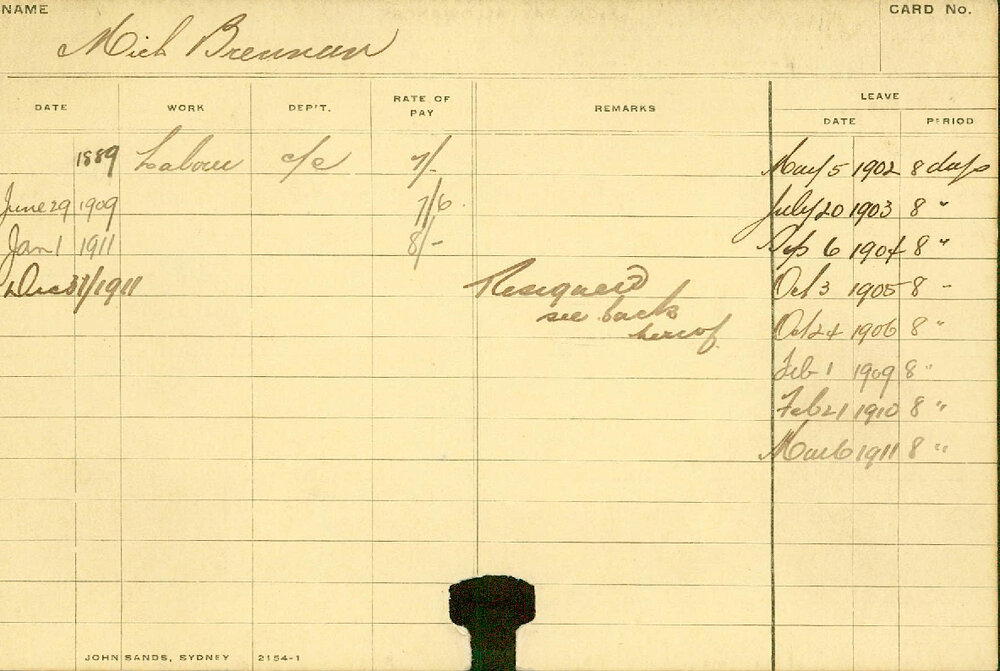 NAME
CARD No.
Mich Brennan
DATE WORK DEP'T. RATE OF PAY REMARKS LEAVE
DATE PERIOD
1889 Labour c/c 7/-
May 5 1902 8 days
June 29 1909 7/6
July 20 1903 8 "
Jan 1 1911 8/-
Sep 6 1904 8 "
Dec 31/1911 Resigned
Oct 3 1905 8 "
see back
hereof
Oct 24 1906 8 "
Feb 1 1909 8 "
Feb 21 1910 8 "
Mar 6 1911 8 "
JOHN SANDS, SYDNEY 2154-1